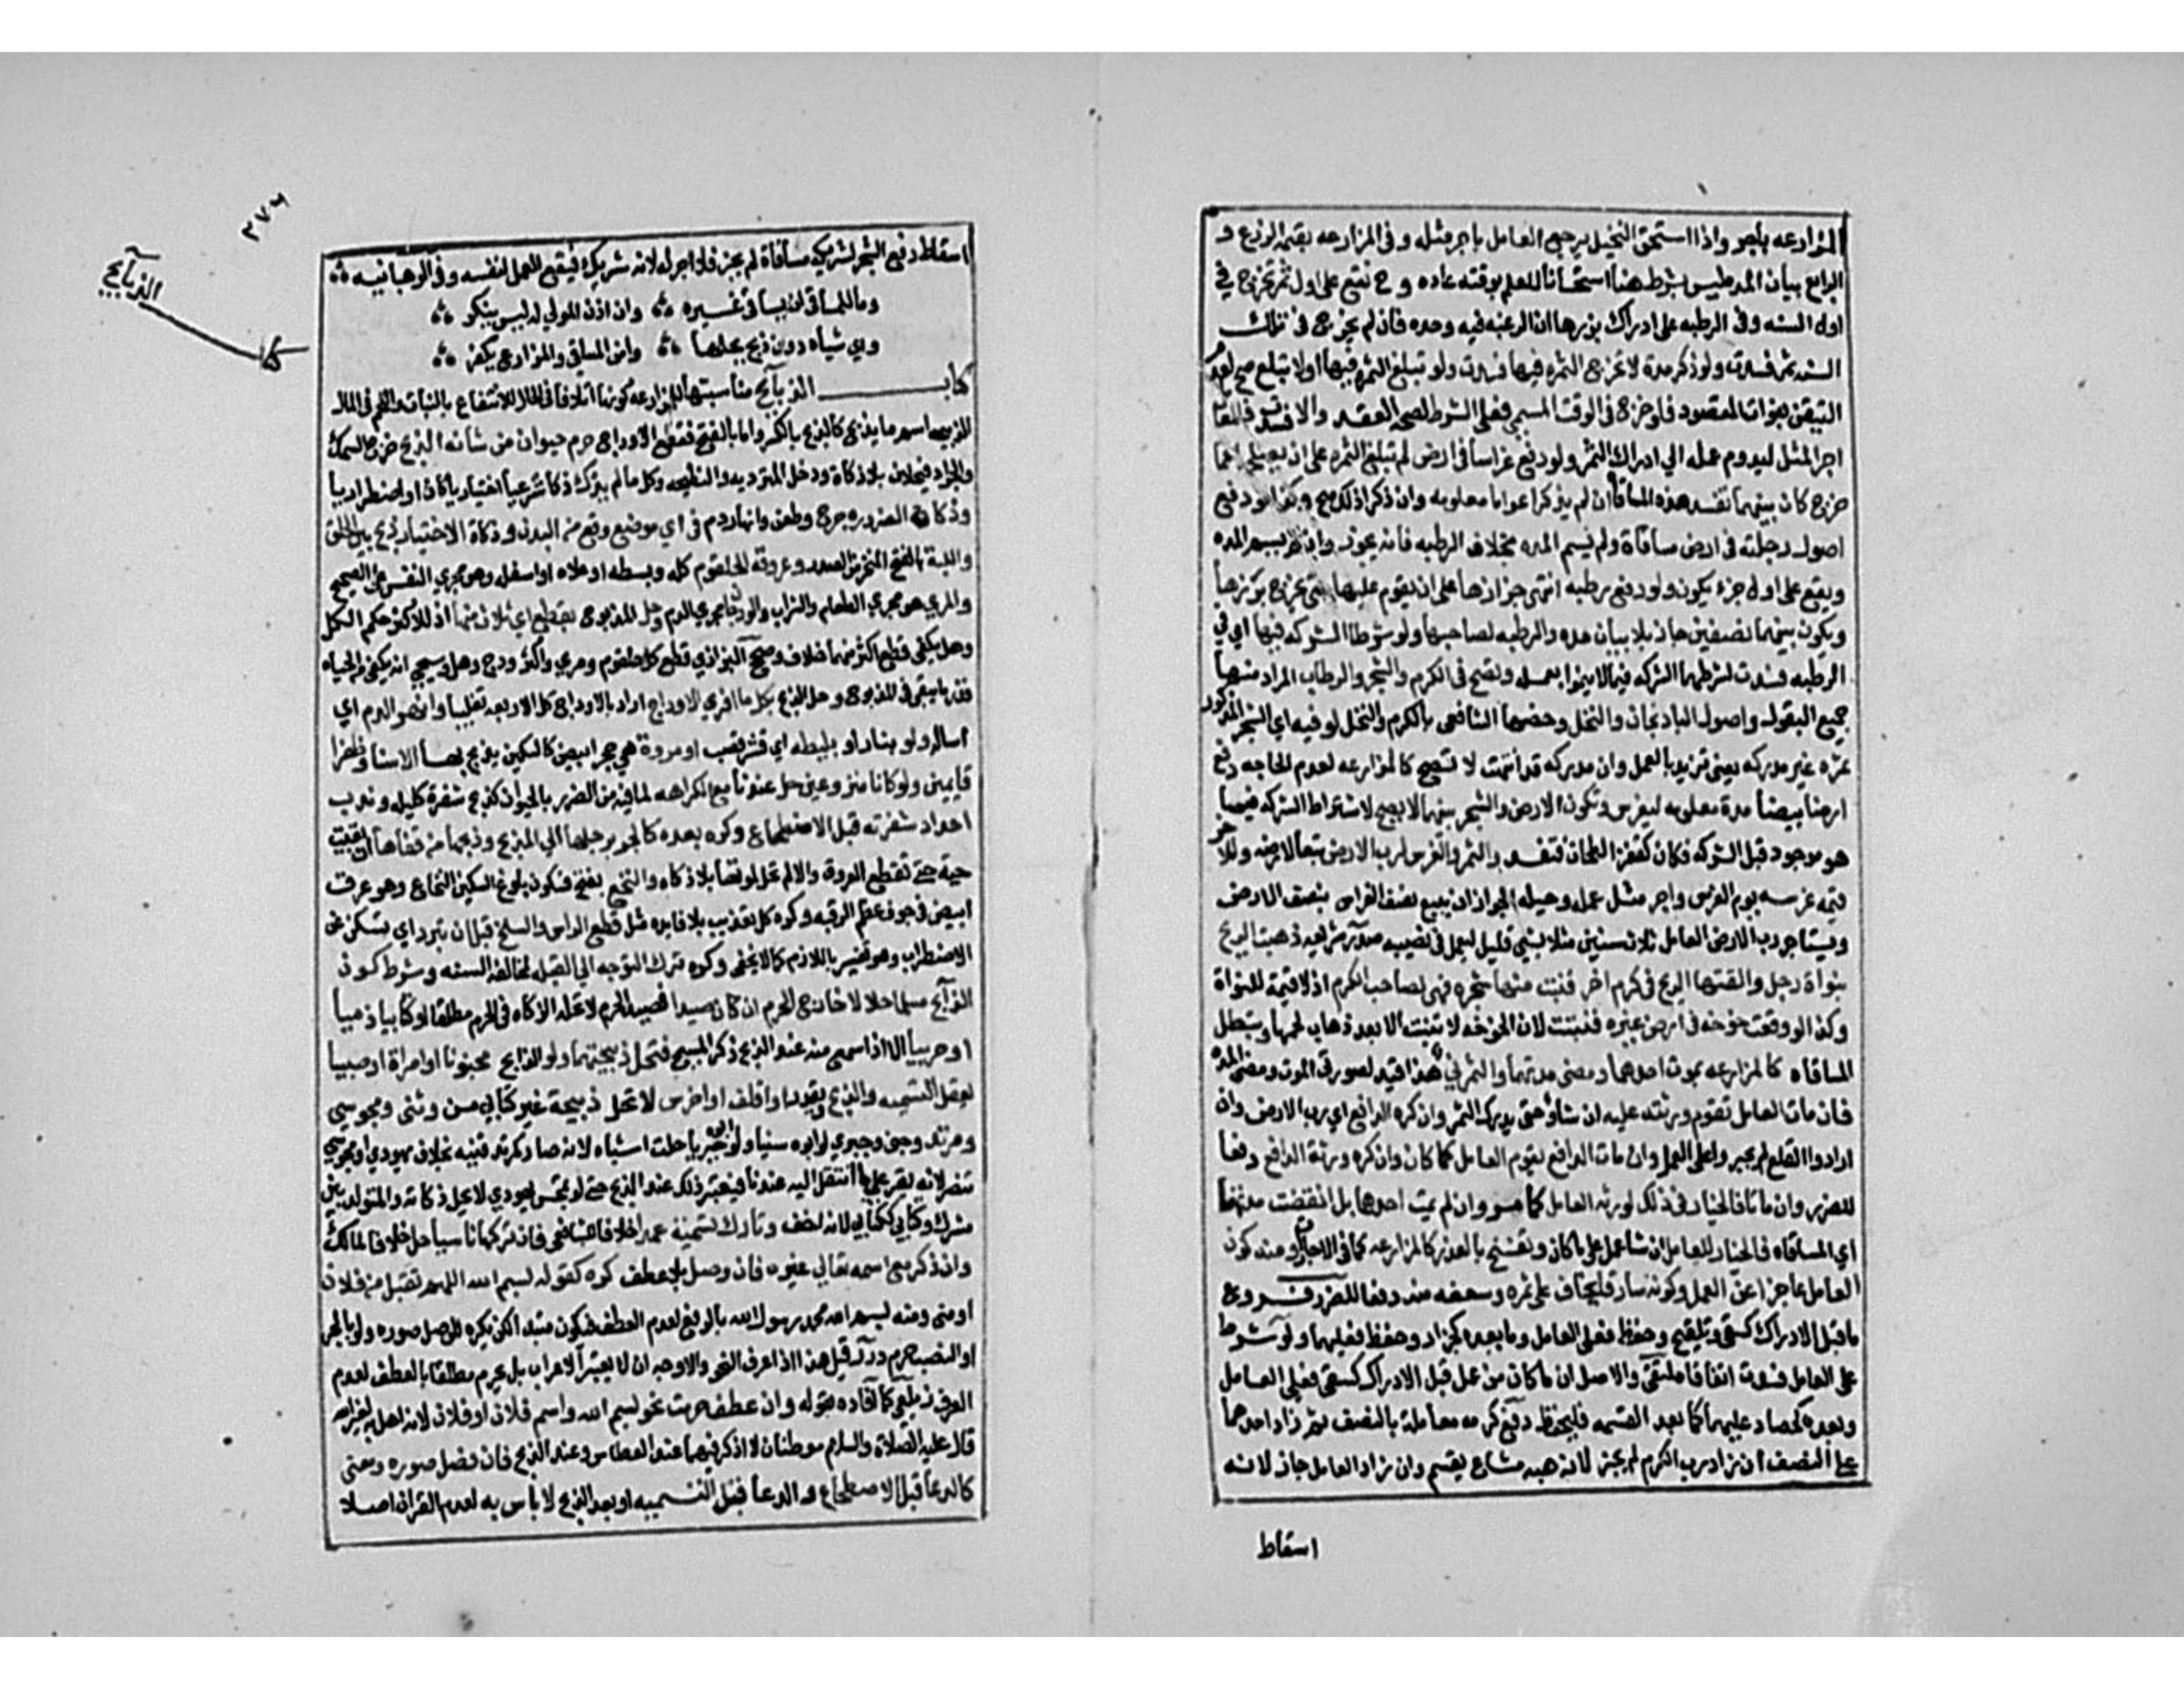 المزارعه بأجر واذا استحق النخيل يرجع العامل باجر مثله وفى المزارعه بقيمة الزرع و
الرابع بيان المده ليس بشرط هنا استحسانا للعلم بوقته عاده وح تقع على اول ثمر تخرج في
اول السنه وفى الرطبه على ادراك بزرها ان الرغبه فيه وحده فان لم يخرج فى تلك
السنه ثمر فسدت ولو ذكر مدة لا تخرج الثمره فيها فسدت ولو تبلغ الثمره فيها اولا تبلغ صح لعدم
التيقن بفوات المقصود فلو خرج فى الوقت المسمى فعلى الشرط لصحة العقد والا فسدت فللعامل
اجر المثل ليدوم عمله الي ادراك الثمر ولو دفع غراسا فى ارض لم تبلغ الثمره على ان يصلحها فما
خرج كان بينهما تفسد هذه المساقاة ان لم يذكر اعواما معلومه وان ذكر ذلك صح وكذا لو دفع
اصول رطبة فى ارض مساقاة ولم يسم المده بخلاف الرطبه فانه يجوز وان لم يسم المده
ويقع على اول جزء يكون ولو دفع رطبه انتهى جزازها على ان يقوم عليها حتى يخرج بزرها
ويكون بينهما نصفين جاز بلا بيان مده والرطبه لصاحبها ولو شرطا الشركه فيها اي في
الرطبه فسدت لشرطهما الشركه فيما لا ينمو بعمله وتصح فى الكرم والشجر والرطاب المراد منها
جميع البقول واصول الباذنجان والنخل وخصها الشافعى بالكرم والنخل لو فيه اي الشجر المذكور
ثمره غير مدركه يعنى تزيد بالعمل وان مدركه قد انتهت لا تصح كالمزارعه لعدم الحاجه دفع
ارضا بيضا مدة معلومه ليغرس وتكون الارض والشجر بينهما لا يصح لاشتراط الشركه فيما
هو موجود قبل الشركه فكان كقفيز الطحان فتفسد والثمر والغرس لرب الارض تبعا لارضه وللاخر
قيمة غرسه يوم الغرس واجر مثل عمله وحيله الجواز ان يبيع نصف الغراس بنصف الارض
ويستاجر رب الارض العامل ثلاث سنين مثلا بشي قليل ليعمل فى نصيبه صدر شريعه ذهبت الريح
بنواة رجل والقتها الريح فى كرم اخر فنبت منها شجره فهى لصاحب الكرم اذ لا قيمة للنواة
وكذا لو وقعت خوخه فى ارض غيره فنبتت لان الخوخه لا تنبت الا بعد ذهاب لحمها وتبطل
المساقاه كالمزارعه بموت احدهما ومضى مدتهما والثمر ني هذا قيد لصورتى الموت ومضى المدة
فان مات العامل تقوم ورثته عليه ان شاؤ حتى يدرك الثمر وان كره الدافع اي رب الارض وان
ارادوا القلع لم يجبروا على العمل وان مات الدافع يقوم العامل كما كان وان كره ورثة الدافع دفعا
للضرر وان ماتا فالخيار فى ذلك لورثه العامل كما مر وان لم يمت احدهما بل انقضت مدتهما
اي المساقاه فالخيار للعامل ان شا عمل على ما كان وتفسخ بالعذر كالمزارعه كما فى الاجارات ومنه كون
العامل عاجزا عن العمل وكونه سارقا يخاف على ثمره وسعفه منه دفعا للضرر فروع
ما قبل الادراك كسقى وتلقيح وحفظ فعلى العامل وما بعده كجزاز وحفظ فعليهما ولو شرط
على العامل فسدت اتفاقا ملتقى والاصل ان ما كان من عمل قبل الادراك كسقى فعلى العامل
وبعده كحصاد عليهما كما بعد القسمه فليحفظ دفع كرمه معاملة بالنصف ثم زاد احدهما
على النصف ان زاد رب الكرم لم يجز لانه هبه مشاع يقسم وان زاد العامل جاز لانه
اسقاط
٣٧٦
كتا الذبايح
اسقاط دفع الشجر لشريكه مساقاة لم يجز فلا اجر له لانه شريك فيقع العمل لنفسه وفى الوهبانيه
وما للمساقى ان يساقى غيره وان اذن المولي له ليس ينكر
وفي شياه دون ذبح بحلها وانى المساقى والمزارع يكفر
كتاب الذبايح مناسبتها للمزارعه كونها اتلافا فى الحال للانتفاع بالنبات واللحم فى المال
الذبيحه اسم ما يذبح كالذبح بالكسر واما بالفتح فقطع الاوداج حرم حيوان من شانه الذبح خرج السمك
والجراد فيحلان بلا ذكاة ودخل المترديه والنطيحه وكل ما لم يذك ذكا شرعيا اختياريا كان او اضطراريا
وذكاة الضروره جرح وطعن وانهار دم فى اي موضع وقع من البدن وذكاة الاختيار ذبح بين الحلق
واللبة بالفتح المنحر من الصدر وعروقه الحلقوم كله وسطه او اعلاه او اسفله وهو مجري النفس على الصحيح
والمري هو مجري الطعام والشراب والودجان مجري الدم وحل المذبوح بقطع اي ثلاث منها اذ للاكثر حكم الكل
وهل يكفى قطع اكثر منها خلاف وصحح البزازي قطع كل حلقوم ومري واكثر ودج وهل وسيجي انه يكفى من الحياه
قدر ما يبقى فى المذبوح وحل الذبح بكل ما افري الاوداج اراد بالاوداج كل الاربعه تغليبا وانهر الدم اي
اساله ولو بنار او بليطه اي قشر قصب او مروة هي حجر ابيض كالسكين يذبح بها الا سنا وظفرا
قايمين ولو كانا منزوعين حل عندنا مع الكراهه لما فيه من الضرر بالحيوان كذبح بشفرة كليله وندب
احداد شفرته قبل الاضطجاع وكره بعده كالجر برجلها الي المذبح وذبحها من قفاها ان بقيت
حية حتى تقطع العروق والا لم تحل لموتها بلا ذكاه والنخع بفتح فسكون بلوغ السكين النخاع وهو عرق
ابيض فى جوف عظم الرقبه وكره كل تعذيب بلا فايده مثل قطع الراس والسلخ قبل ان تبرد اي تسكن عن
الاضطراب وهو تفسير باللازم كما لا يخفى وكره ترك التوجه الي القبله لمخالفة السنه وشرط كون
الذابح مسلما حلالا خارج الحرم ان كان صيدا فصيد الحرم لا تحله الذكاه فى الحرم مطلقا او كتابيا ذميا
او حربيا الا اذا سمع منه عند الذبح ذكر المسيح فتحل ذبيحتهما ولو الذابح مجنونا او امراة او صبيا
يعقل التسميه والذبح ويقدر او اقلف او اخرس لا تحل ذبيحة غير كتابي من وثنى ومجوسي
ومرتد وجنى وجبري لو ابوه سنيا ولو ابوه جبريا حلت اشباه لانه صار كمرتد قنيه بخلاف يهودي او مجوسي
تنصر لانه يقر على ما انتقل اليه عندنا فيعتبر ذلك عند الذبح حتى لو تمجس يهودي لا تحل ذكاته والمتولد بين
مشرك وكتابي ككتابي لانه اخف وتارك تسمية عمدا خلافا للشافعى فان تركها ناسيا حل خلافا لمالك
وان ذكر مع اسمه تعالى غيره فان وصل بلا عطف كره كقوله بسم الله اللهم تقبل من فلان
او منى ومنه بسم الله محمد رسول الله بالرفع لعدم العطف فيكون مبتدا لكن يكره للوصل صوره ولو بالجر
او النصب حرم درر قيل هذا اذا عرف النحو والاوجه ان لا يعتبر الاعراب بل يحرم مطلقا بالعطف لعدم
العرف زيلعى كما افاده بقوله وان عطف حرمت نحو بسم الله واسم فلان او فلان لانه اهل به لغير الله
قال عليه الصلاة والسلام موطنان لا اذكر فيهما عند العطاس وعند الذبح فان فصل صوره ومعنى
كالدعا قبل الاضطجاع والدعا قبل التسميه او بعد الذبح لا باس به لعدم القران اصلا